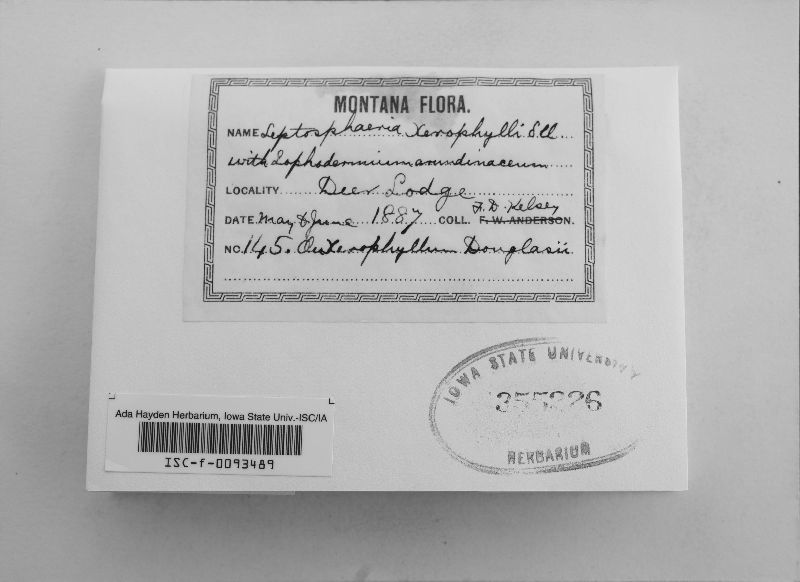 MONTANA FLORA.
NAME Leptosphaeria Xerophylli Ell
with Lophodermium arundinaceum
LOCALITY Deer Lodge
F. D. Kelsey
DATE May & June 1887 COLL. F. W. ANDERSON.
NO. 145. On Xerophyllum Douglasii
IOWA STATE UNIVERSITY
355226
HERBARIUM
Ada Hayden Herbarium, Iowa State Univ.-ISC/IA
ISC-f-0093489